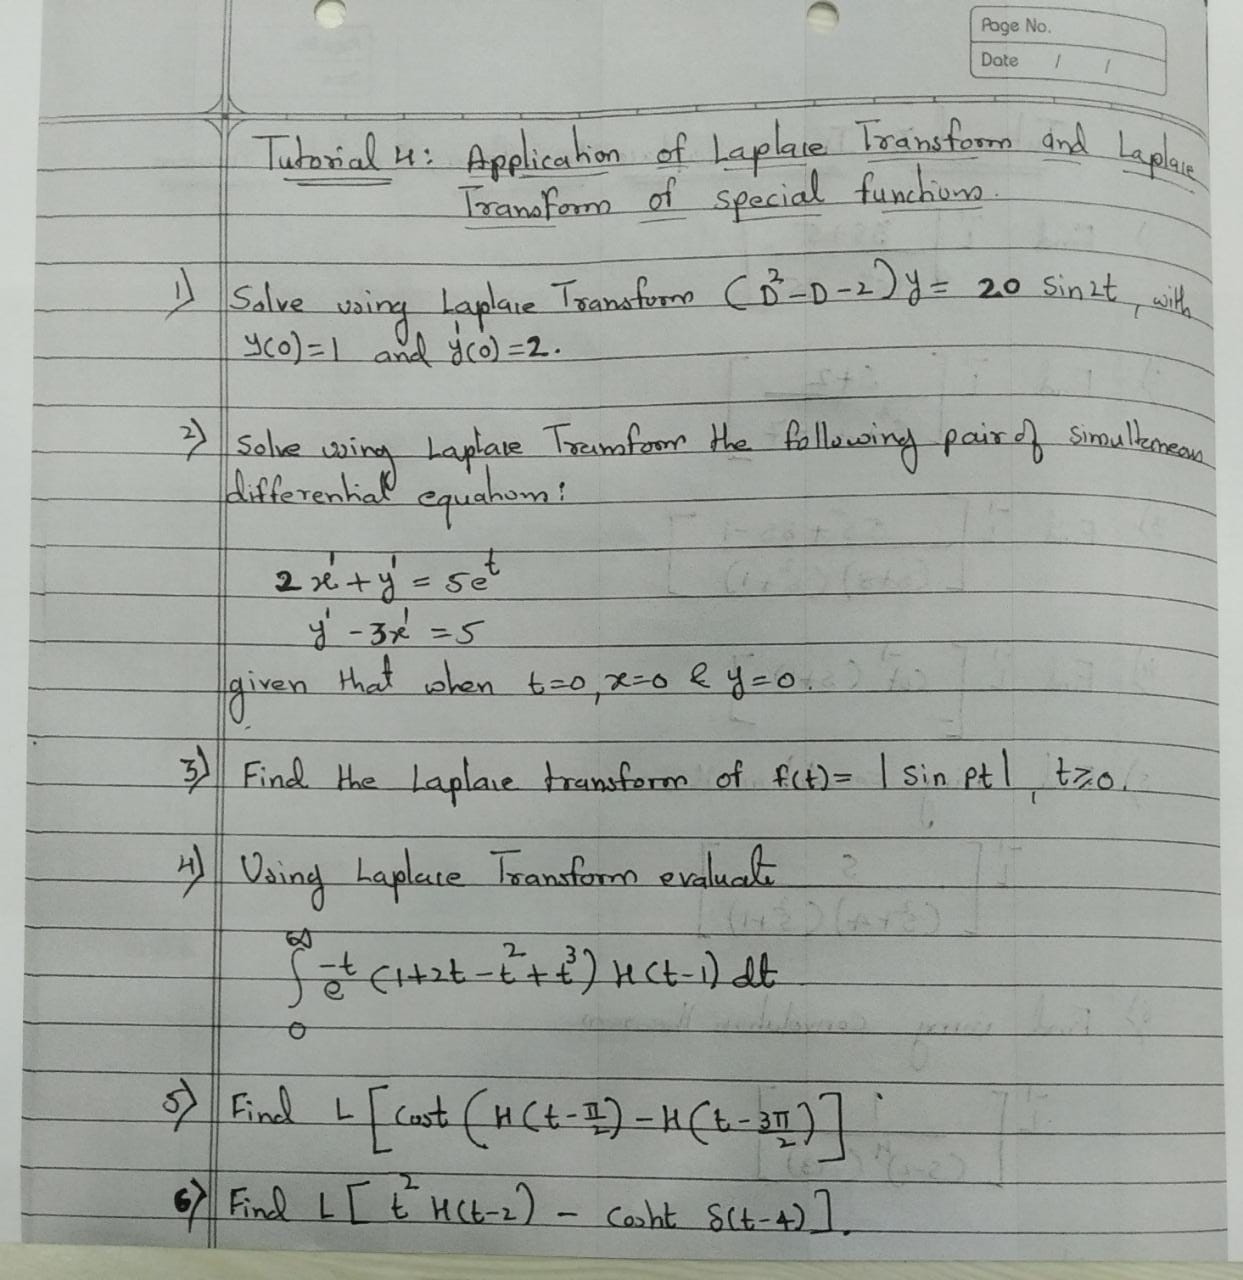 Page No.
Date / /
Tutorial 4: Application of Laplace Transform and Laplace
Transform of special functions.
1) Solve using Laplace Transform (D²-D-2)y = 20 sin2t, with
y(0)=1 and y'(0)=2.
2) Solve using Laplace Transform the following pair of simultaneous
differential equations:
2x' + y' = 5e^t
y' - 3x' = 5
given that when t=0, x=0 & y=0.
3) Find the Laplace transform of f(t)= |sin pt|, t≥0.
4) Using Laplace Transform evaluate
∫₀^∞ e^-t (1+2t-t²+t³) H(t-1) dt
5) Find L[cost (H(t-π/2) - H(t-3π/2)]
6) Find L[t² H(t-2) - cosht δ(t-4)].